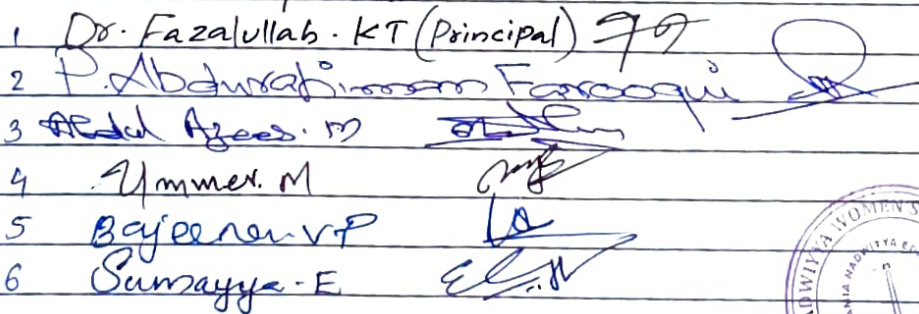 1 Dr. Fazalullah. KT (Principal)
2 P. Abdurahimman Farooqui
3 Abdul Azees. M
4 Ummer. M
5 Bajeena. V.P
6 Sumayya. E
ADWIYYA WOMEN'S
ANIA NADWIYYA